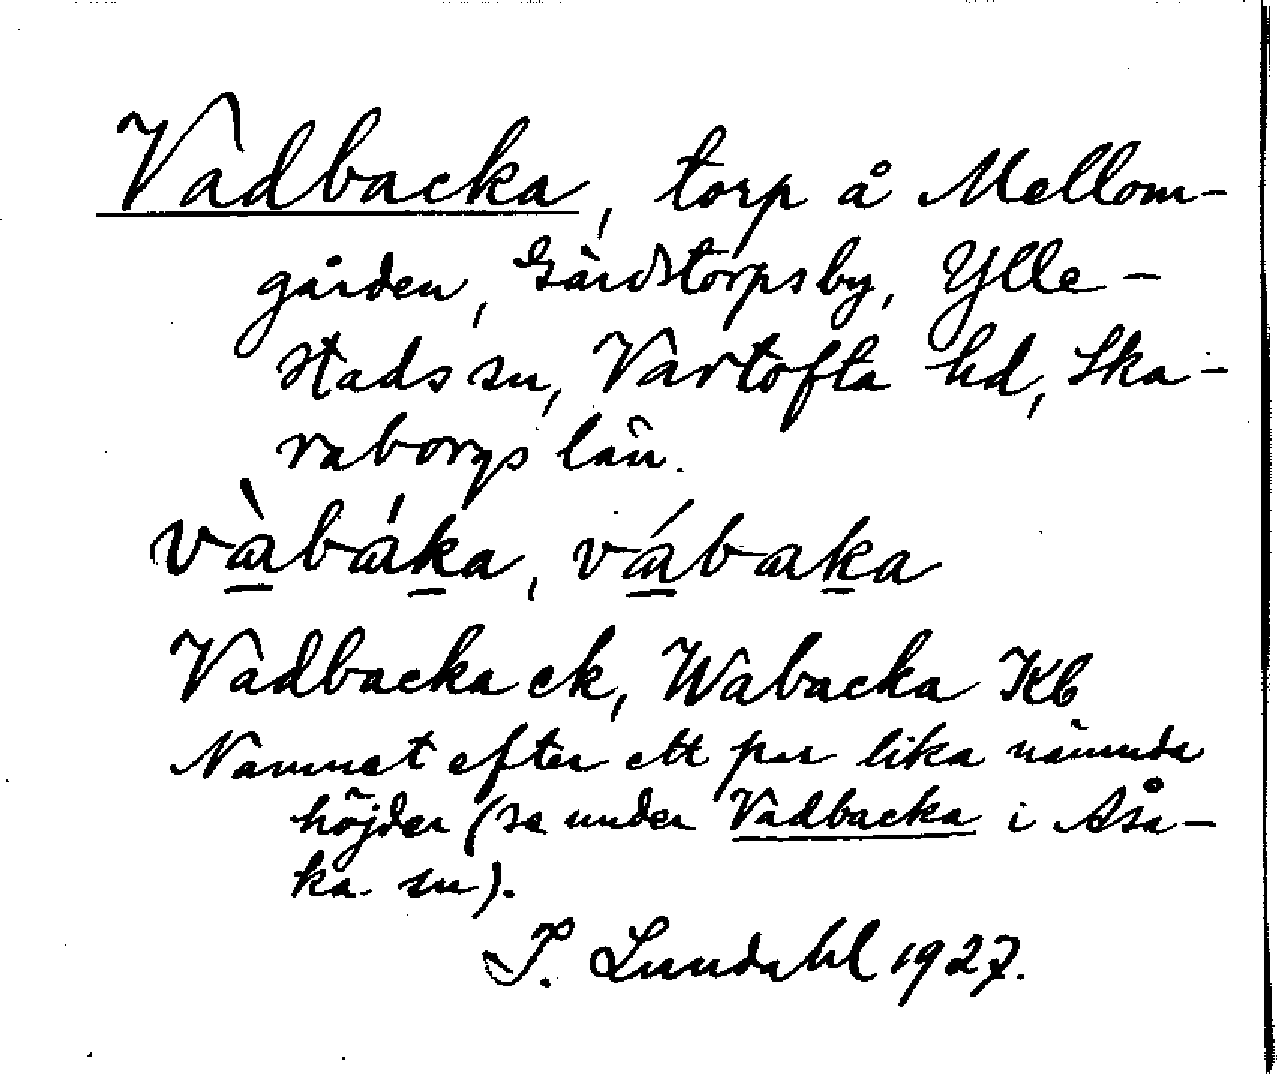 Vadbacka, torp å Mellom-
gården, Gärdstorpsby, Ylle-
stads sn, Vartofta hd, Ska-
raborgs län.
và̱báḵa, vá̱baḵa
Vadbacka ek, Wabacka Kb
Namnet efter ett par lika nämnda
höjder (se under Vadbacka i Åsa-
ka sn).
I. Lundahl 1927.